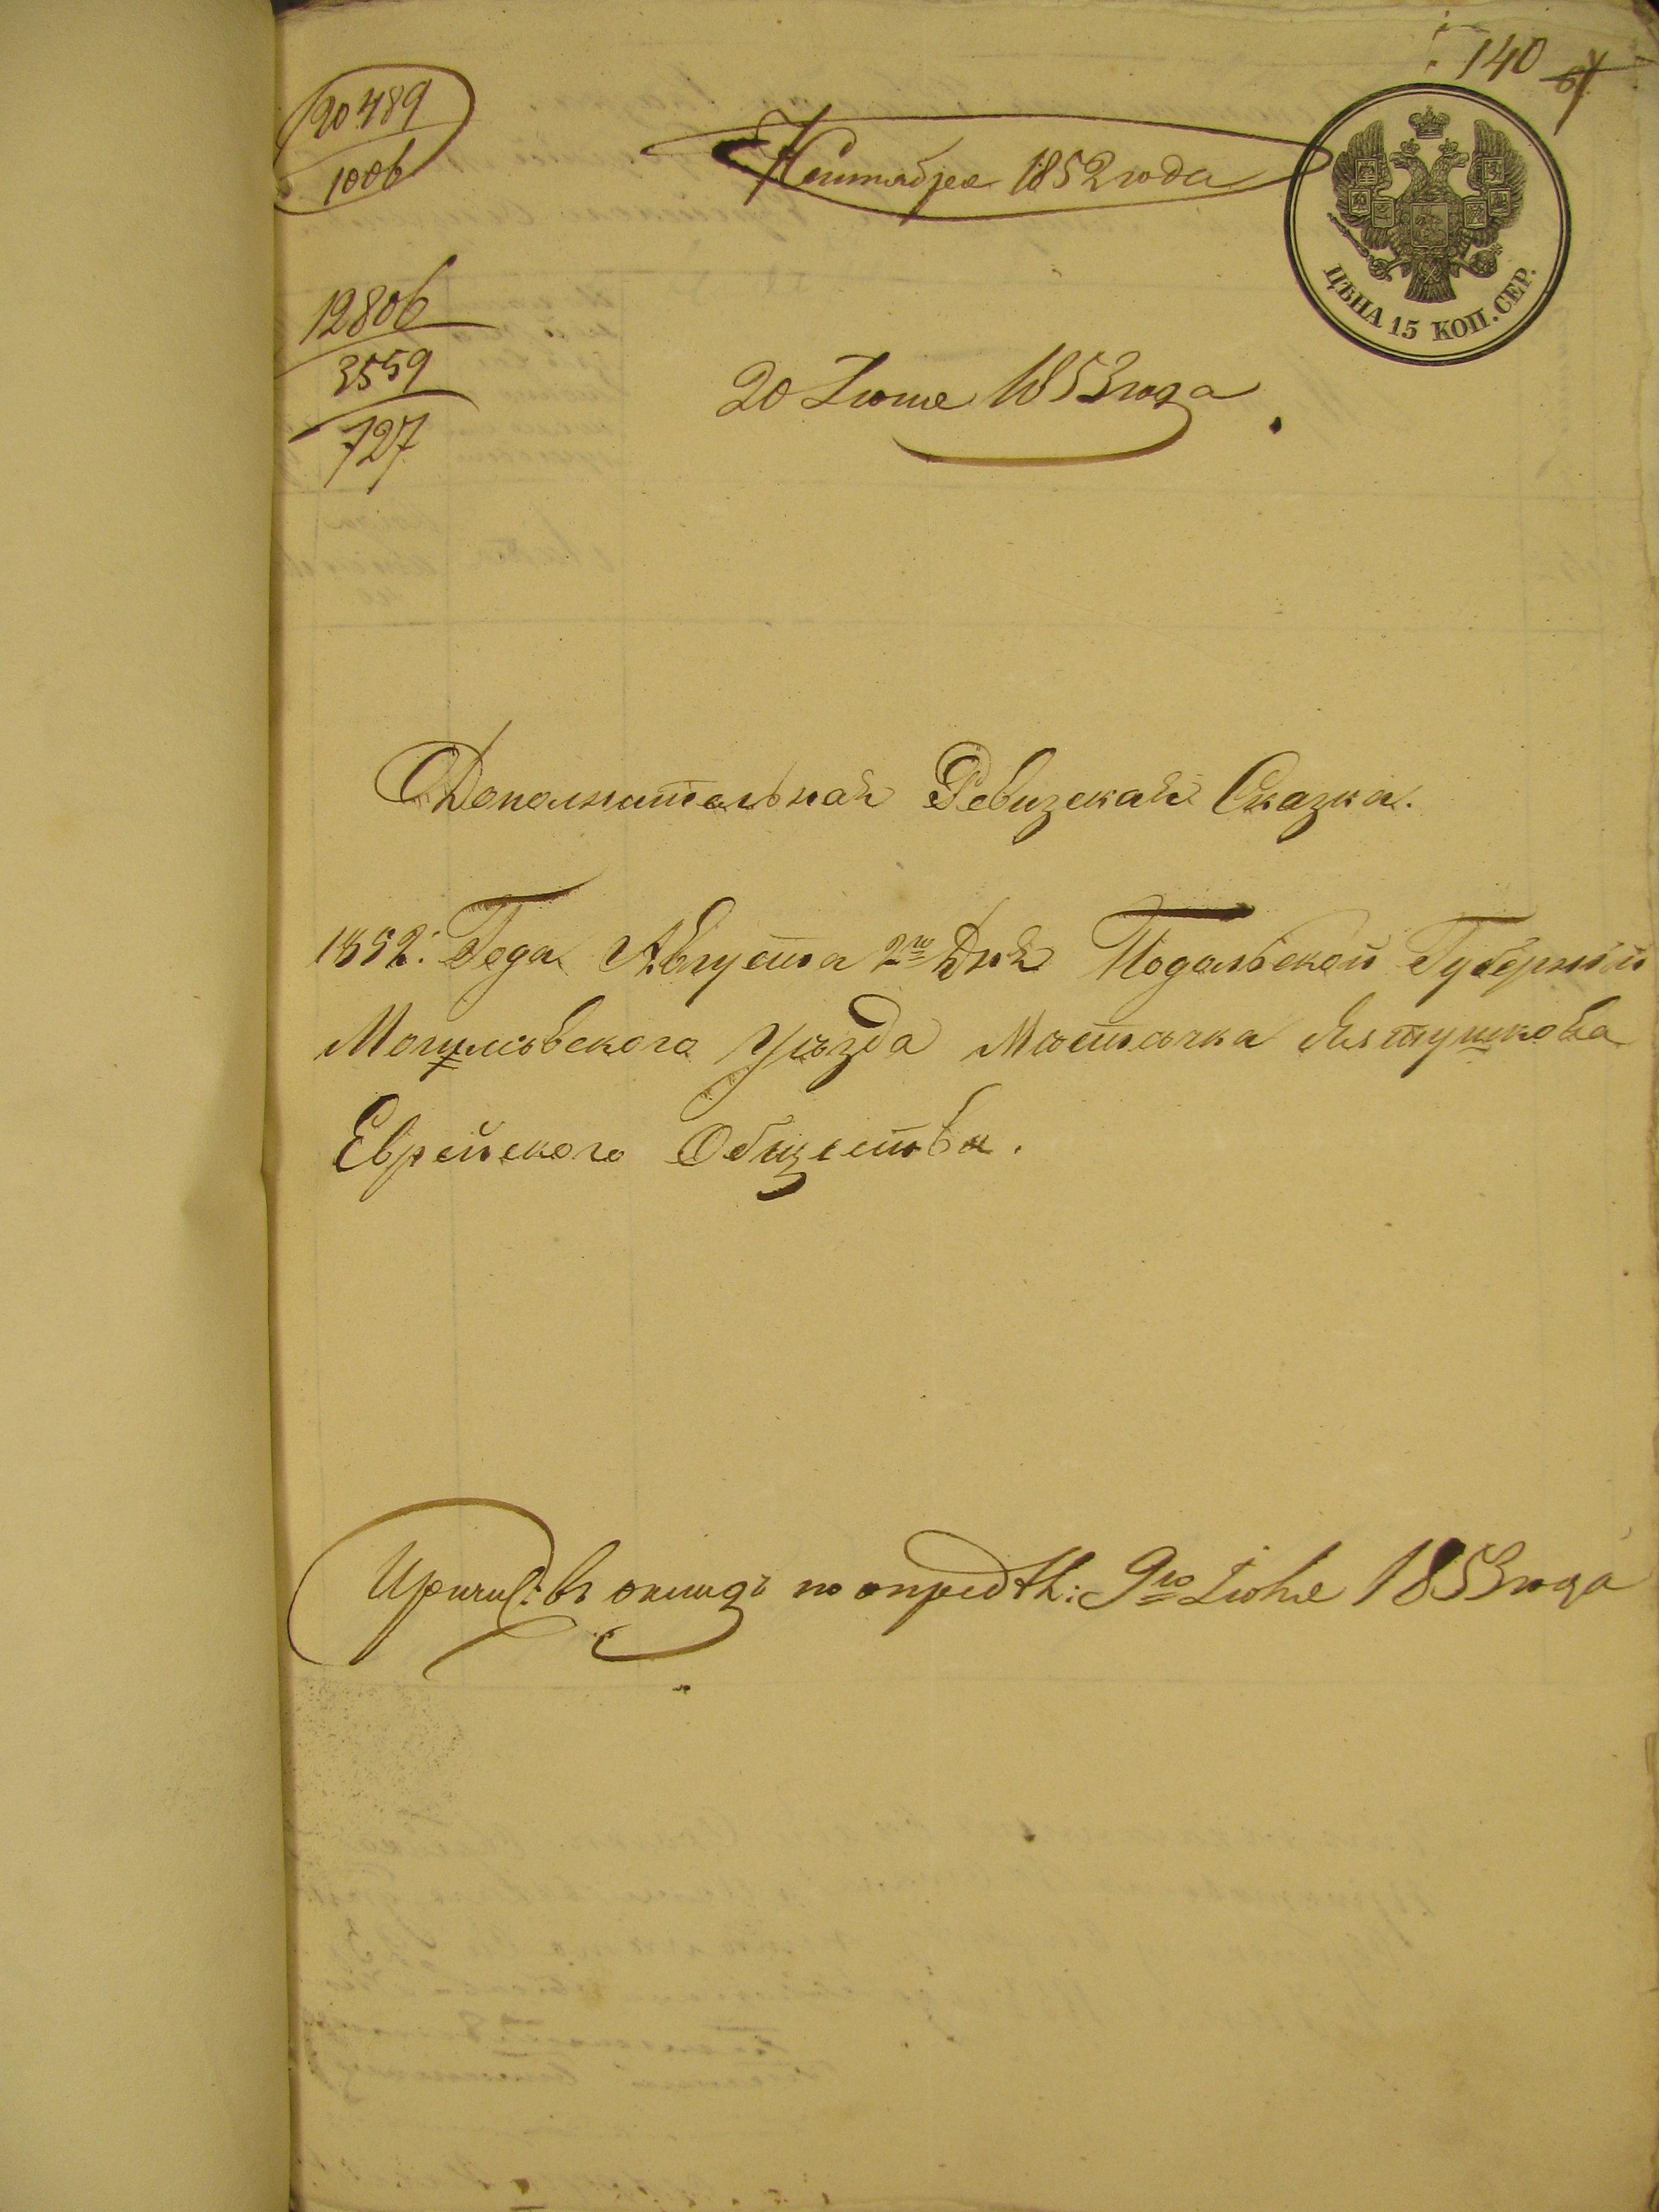 140
20489
1006
Сентября 1852 года
ЦѢНА 15 КОП. СЕР.
12806
3559
727
20 Іюня 1853 года
Дополнительная Ревизская Сказка.
1852: Года Августа 2го Дня Подольской Губерніи
Могилевского Уѣзда Мѣстечка Лятушкова
Еврейского Общества.
Причис: въ окладъ по опредѣл: 9го Іюня 1853 года